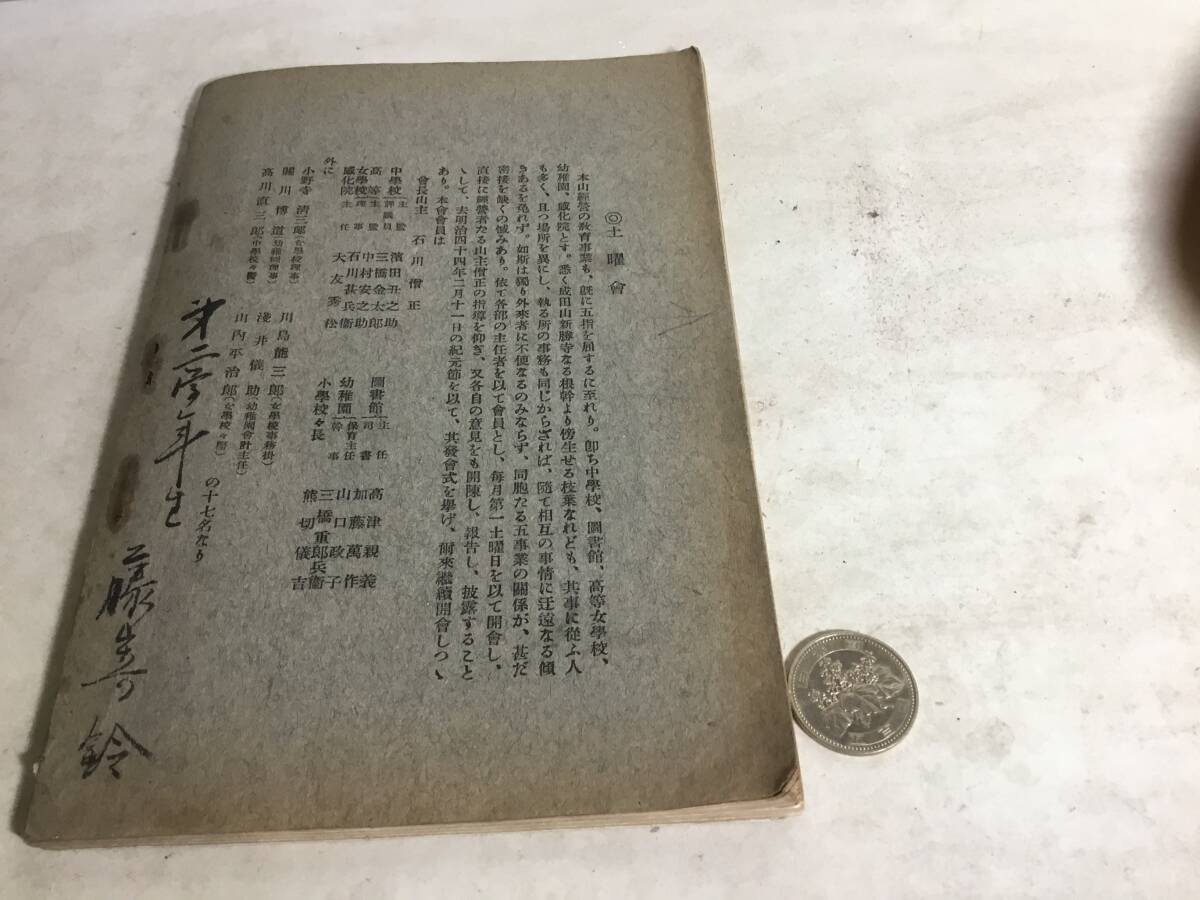 ◎土曜會
本山經營の敎育事業も、旣に五指を屈するに至れり。卽ち中學校、圖書館、高等女學校、
幼稚園、感化院とす。悉く成田山新勝寺なる根幹より傍生せる枝葉なれども、其事に從ふ人
も多く、且つ場所を異にし、執る所の事務も同じからざれば、隨て相互の事情に迂遠なる傾
きあるを免れず。如斯は獨り外來者に不便なるのみならず、同胞たる五事業の關係が、甚だ
密接を缺くの憾みあり。依て各部の主任者を以て會員とし、每月第一土曜日を以て開會し、
直接に經營者たる山主僧正の指導を仰ぎ、又各自の意見をも開陳し、報吿し、披露すること
ゝして、去明治四十四年二月十一日の紀元節を以て、其發會式を擧げ、爾來繼續開會しつゝ
あり。本會會員は
會長山主 石川僧正
中學校 主監 濱田丑之助
評議員 三橋金太郎
高等女學校 主監 中村安之助
理事 石川甚兵衞
感化院 主任 大友秀松
圖書館 主任 高津親義
司書 加藤萬作
幼稚園 保育主任 山口政子
幹事 三橋重郎兵衞
小學校々長 熊切儀吉
外に
小野寺淸三郎(女學校理事)
關川博道(幼稚園理事)
高川直三郎(中學校々醫)
川島龍三郎(女學校事務掛)
淺井儀助(幼稚園會計主任)
山內平治郎(女學校々醫)
の十七名なり
第二学年生
藤崎鈴